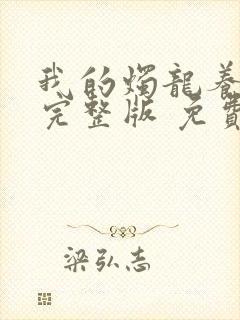 我的燭龍養
完整版 免費
梁弘志